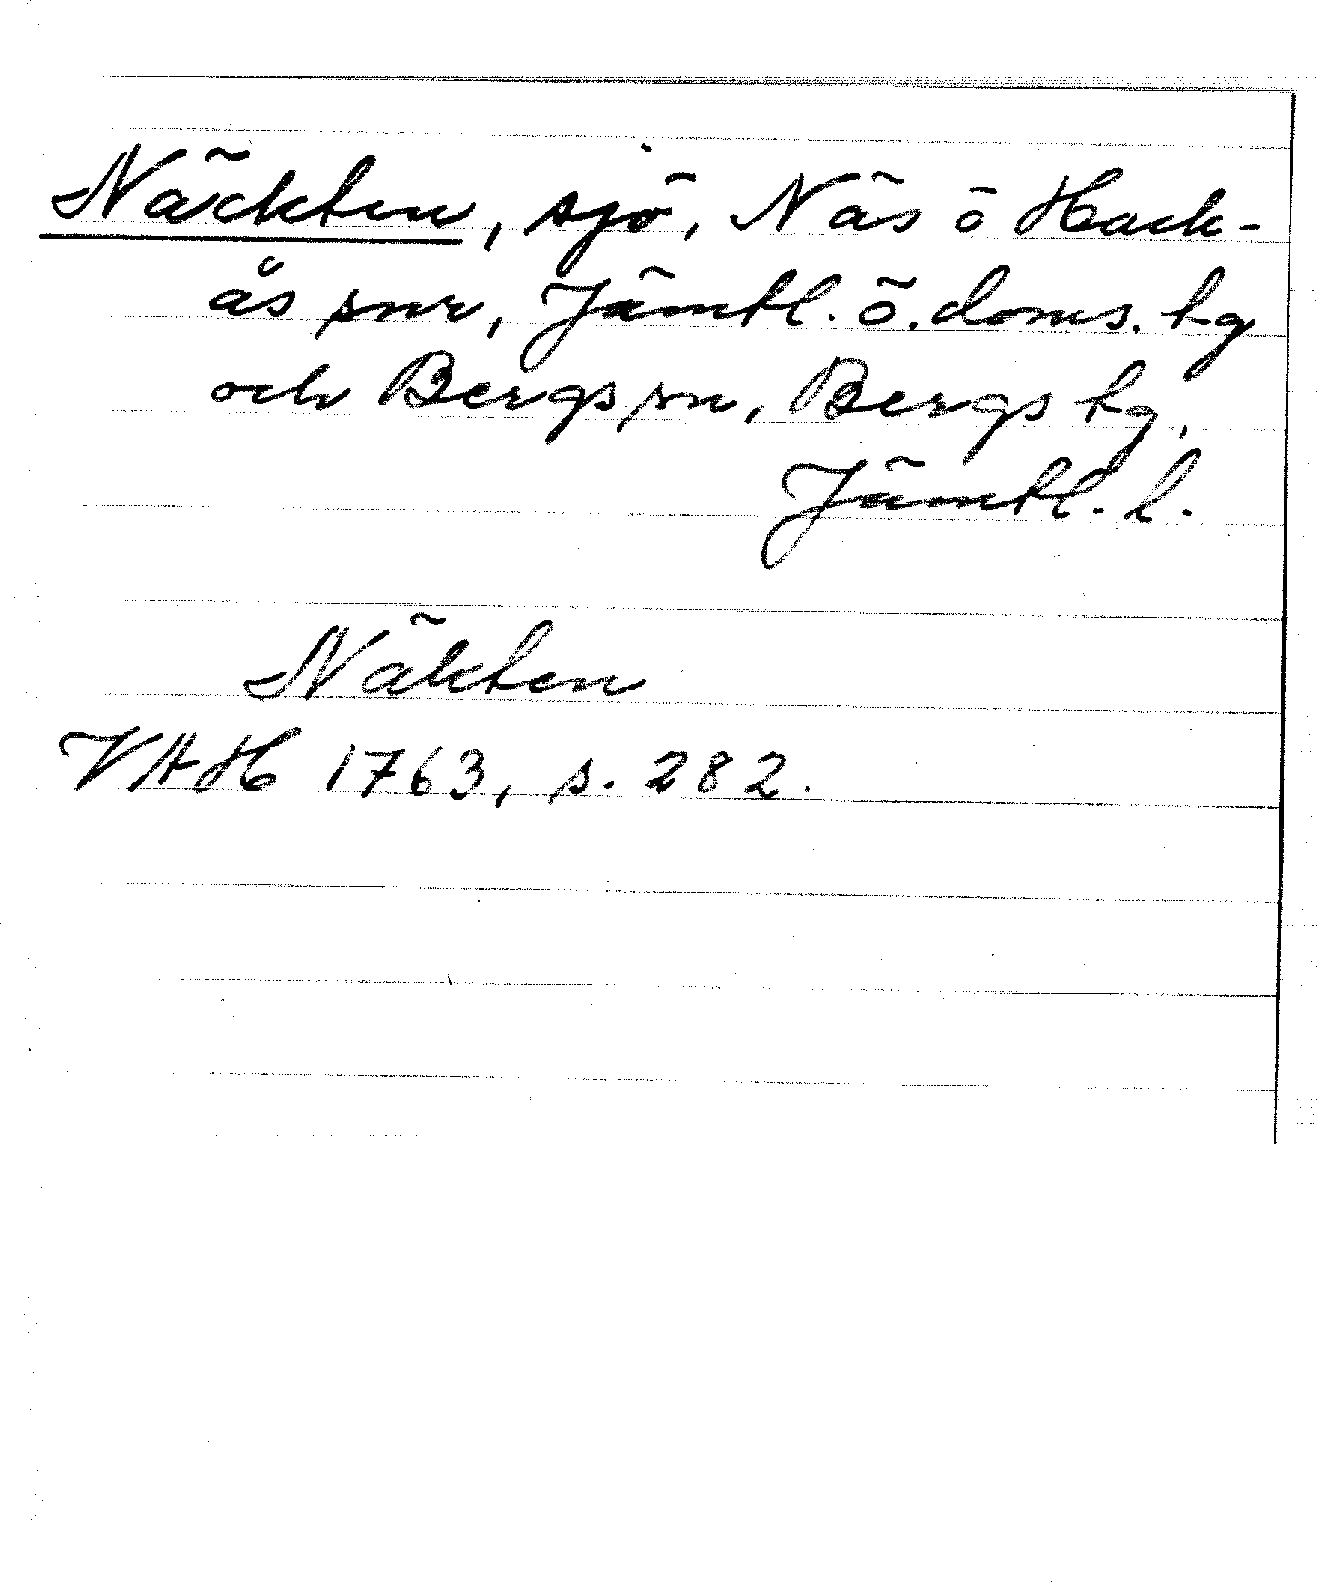 Näckten, sjö, Näs o Hack-
ås snr, Jämtl. ö. doms. hg
och Bergs sn, Bergs hg,
Jämtl. l.
Näkten
VAH 1763, s. 282.